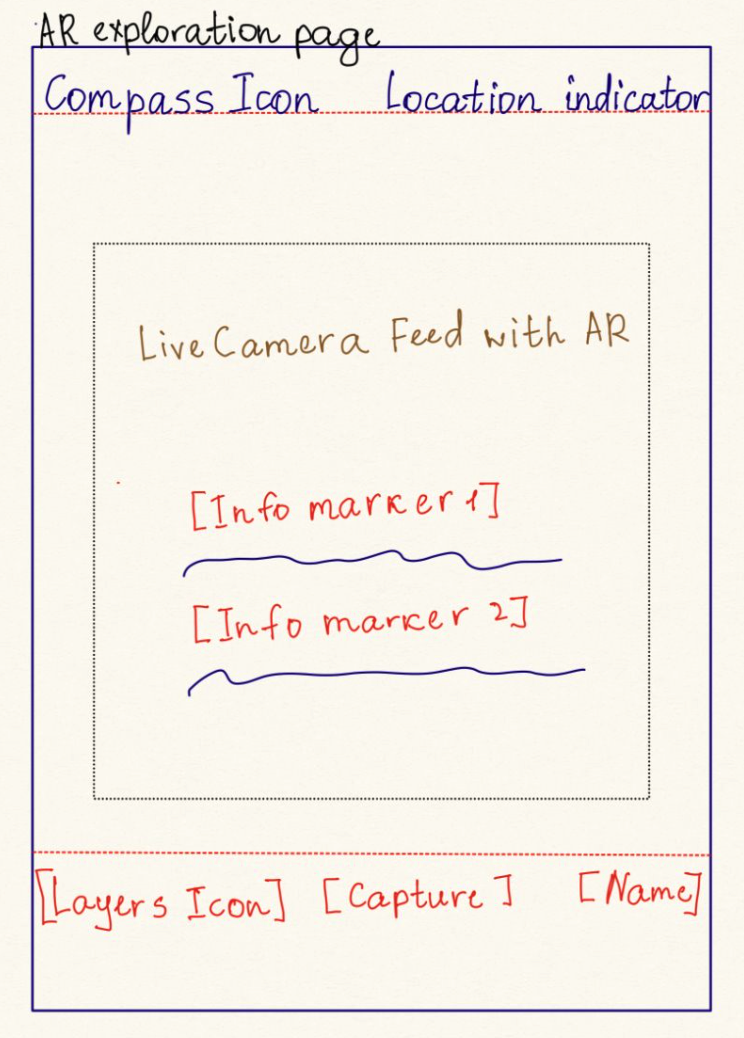 AR exploration page
Compass Icon Location indicator
Live Camera Feed with AR
[Info marker 1]
[Info marker 2]
[Layers Icon] [Capture] [Name]